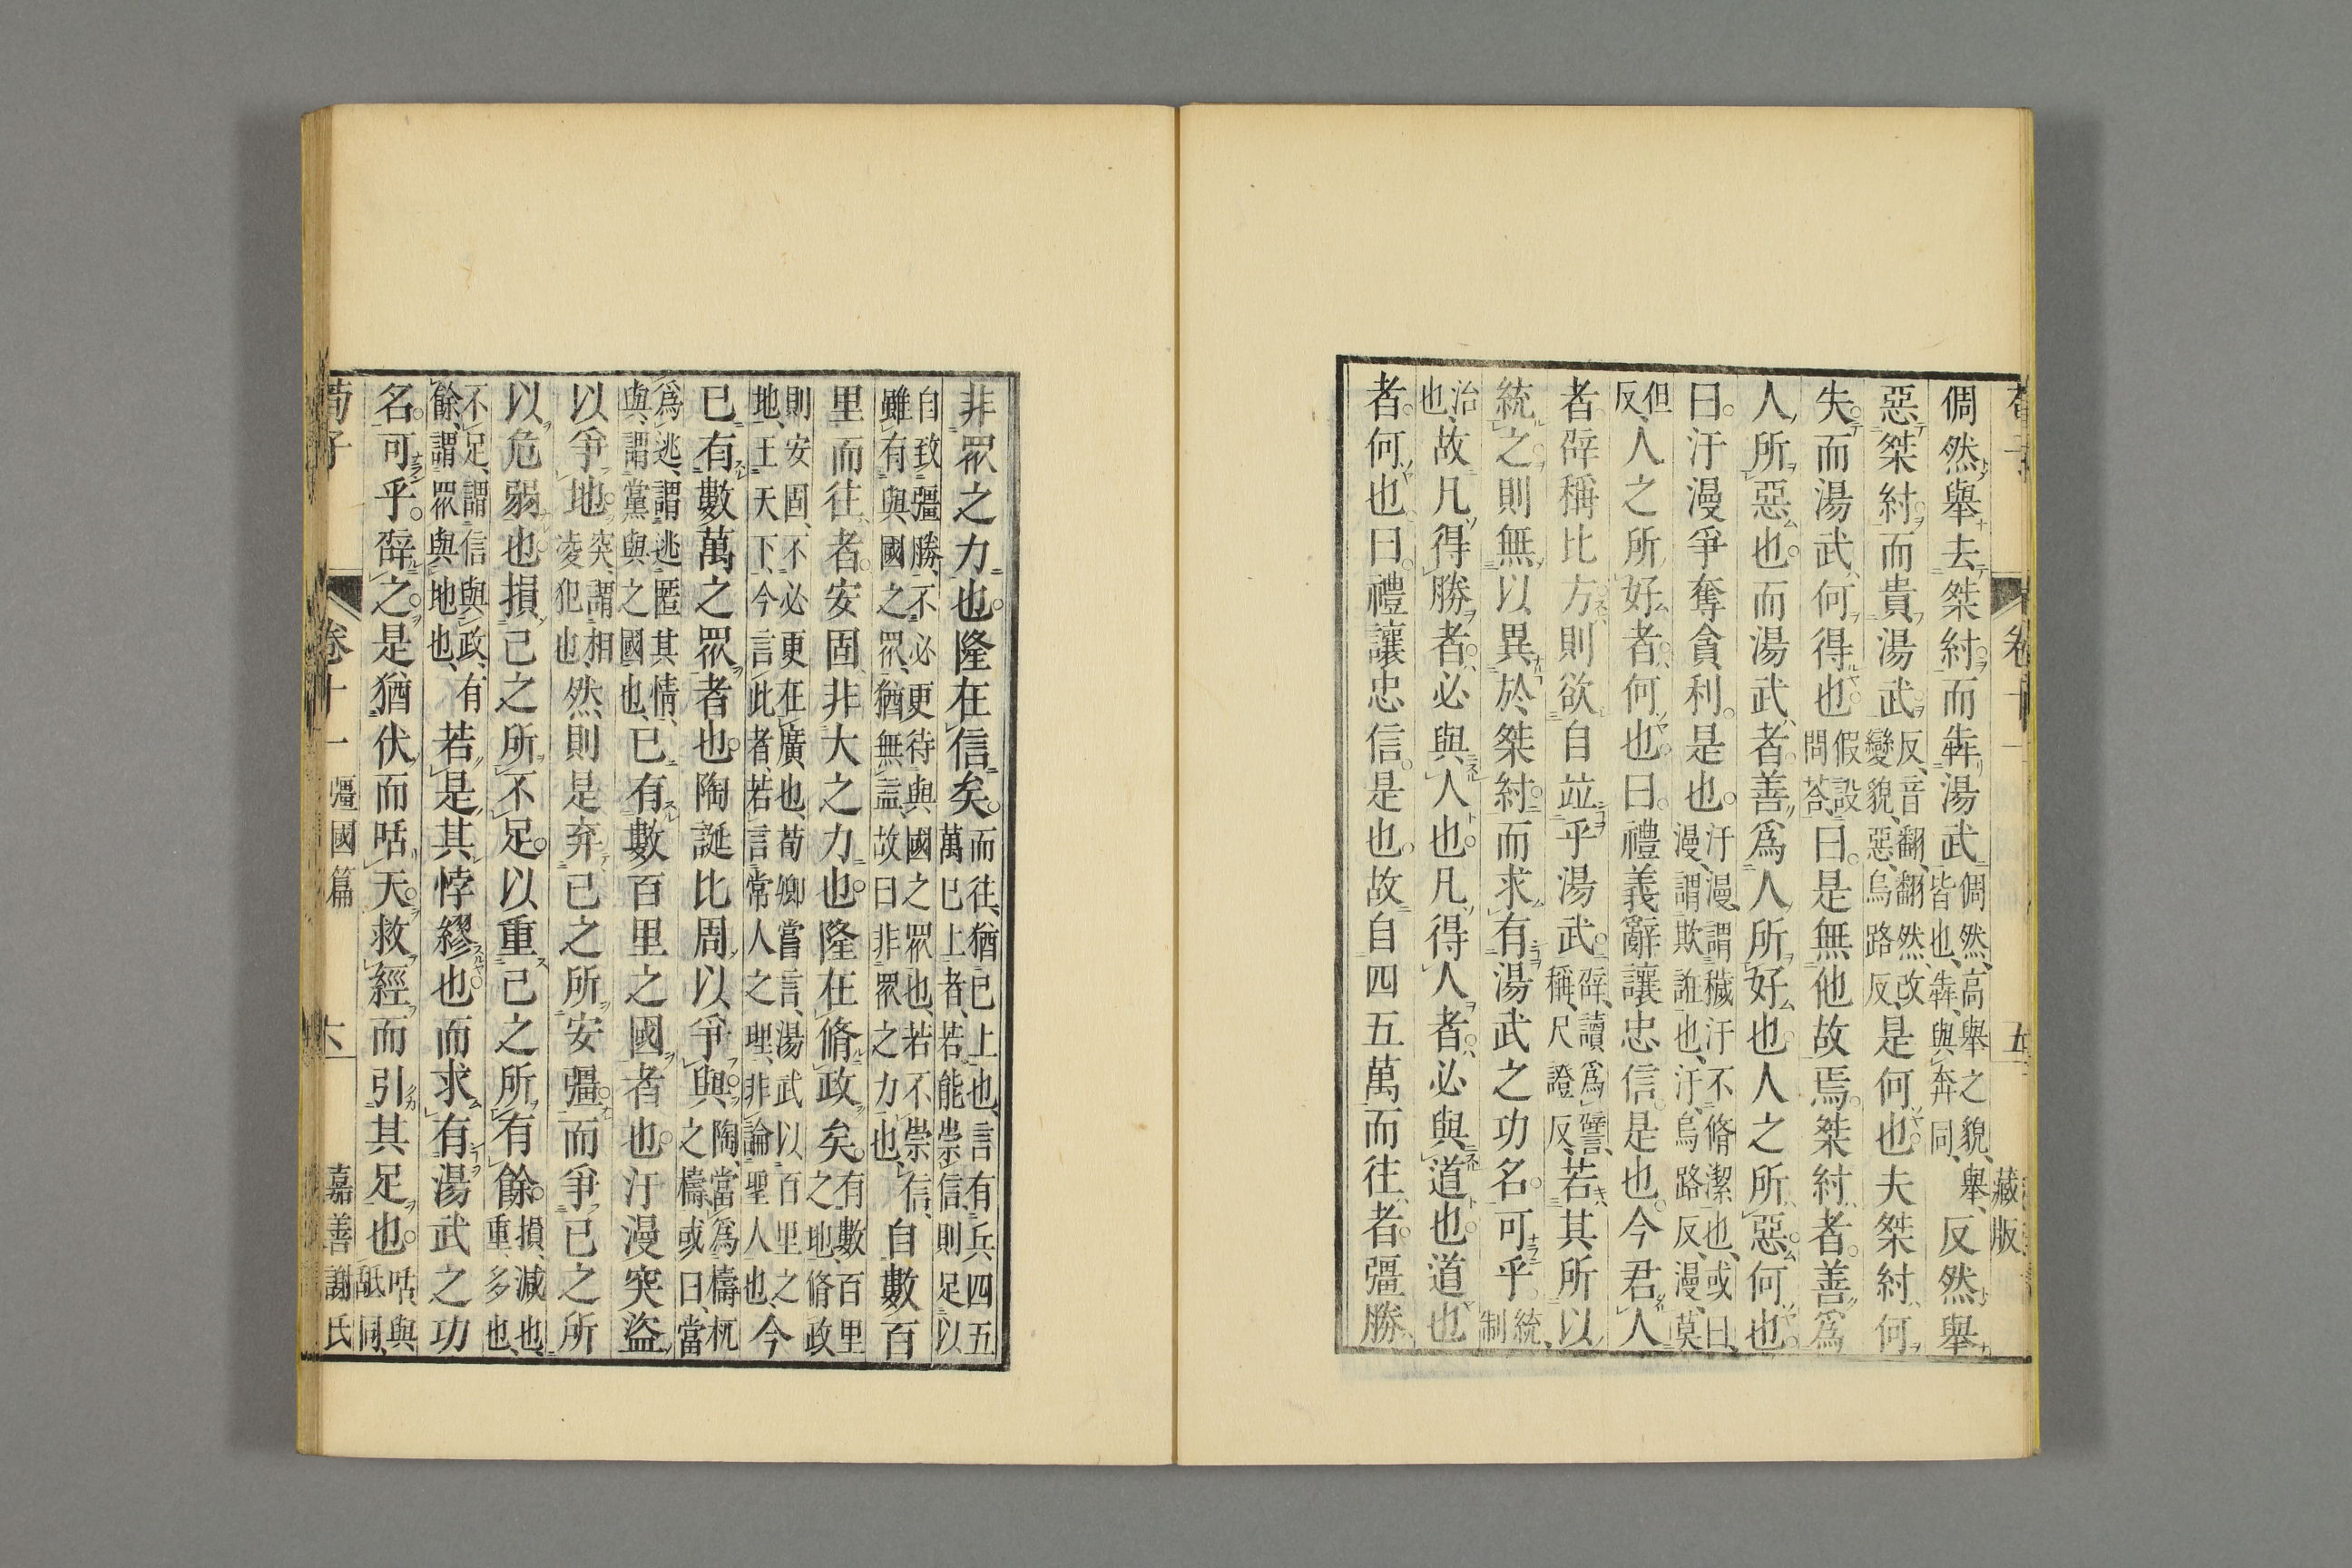 倜然舉去桀紂而犇湯武倜然高舉之貌舉皆也犇與奔同反然舉
惡桀紂而貴湯武反音翻翻然改變貌惡烏路反是何也夫桀紂何
失而湯武何得也假設問荅曰是無他故焉桀紂者善爲
人所惡也而湯武者善爲人所好也人之所惡何也
曰汙漫爭奪貪利是也汙漫謂穢汙不脩潔也或曰漫謂欺誑也汙烏路反漫莫
但反人之所好者何也曰禮義辭讓忠信是也今君人
者辟稱比方則欲自竝乎湯武辟讀爲譬稱尺證反若其所以
統之則無以異於桀紂而求有湯武之功名可乎統制
治也故凡得勝者必與人也凡得人者必與道也道也
者何也曰禮讓忠信是也故自四五萬而往者彊勝
藏版
五
非眾之力也隆在信矣而往猶已上也言有兵四五萬已上者若能崇信則足以
自致彊勝不必更待與國之眾也若不崇信雖有與國之眾猶無益故曰非眾之力也自數百
里而往者安固非大之力也隆在脩政矣有數百里之地脩政
則安固不必更在廣也荀卿嘗言湯武以百里之地王天下今言此者若言常人之理非論聖人也今
已有數萬之眾者也陶誕比周以爭與陶當爲檮杌之檮或曰當
爲逃謂逃匿其情與謂黨與之國也已有數百里之國者也汙漫突盜
以爭地突謂相凌犯也然則是弃己之所安彊而爭己之所
以危弱也損己之所不足以重己之所有餘損減也重多也
不足謂信與政有餘謂眾與地也若是其悖繆也而求有湯武之功
名可乎辟之是猶伏而咶天救經而引其足也咶與䑛同
荀子
卷十一
彊國篇
六
嘉善謝氏